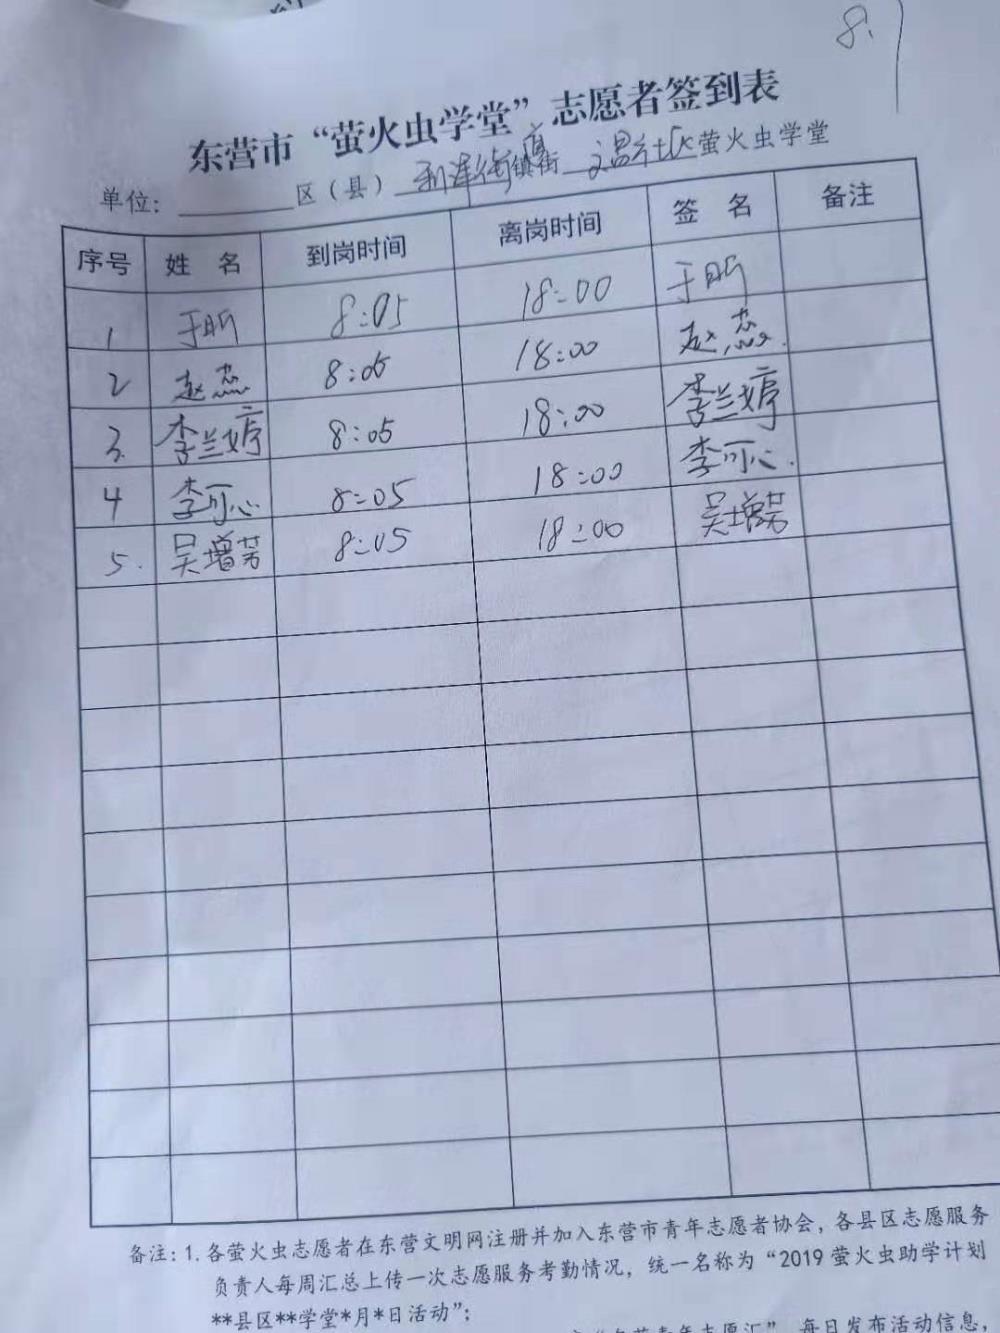 8.7
东营市“萤火虫学堂”志愿者签到表
单位：______区（县）利津街镇街 社区萤火虫学堂
序号 姓 名 到岗时间 离岗时间 签 名 备注
1 于昕 8:05 18:00 于昕
2 赵燕 8:05 18:00 赵燕.
3. 李兰婷 8:05 18:00 李兰婷
4 李可心 8:05 18:00 李可心.
5. 吴增芳 8:05 18:00 吴增芳
备注：1.各萤火虫志愿者在东营文明网注册并加入东营市青年志愿者协会，各县区志愿服务
负责人每周汇总上传一次志愿服务考勤情况，统一名称为“2019萤火虫助学计划
**县区**学堂*月*日活动”；
青年志愿汇”，每日发布活动信息，